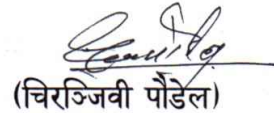 (चिरञ्जिवी पौडेल)